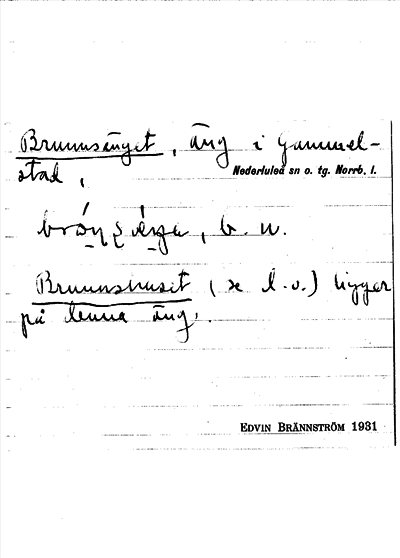 Brunnsänget, äng i Gammel-
stad,
Nederluleå sn o. tg. Norrb. l.
b. n.
Brunnshuset (se d. o.) ligger
på denna äng.
EDVIN BRÄNNSTRÖM 1931